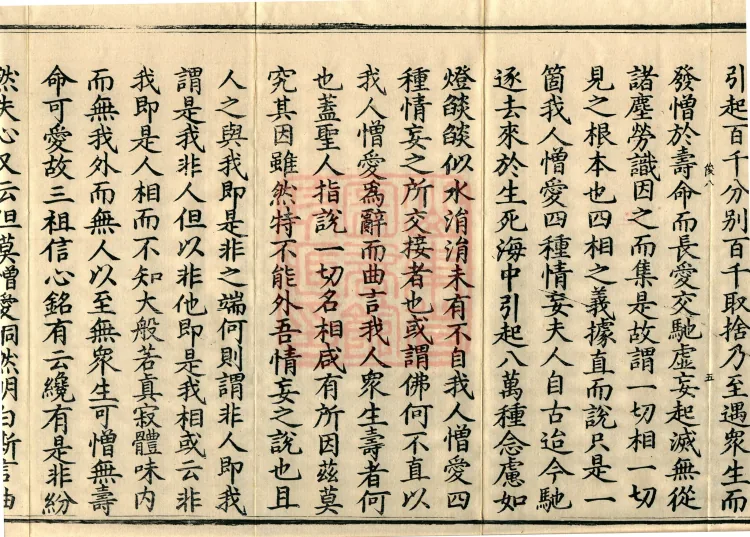 引起百千分別百千取捨乃至遇衆生而
發憎於壽命而長愛交馳虛妄起滅無從
諸塵勞識因之而集是故謂一切相一切
見之根本也四相之義據直而說只是一
箇我人憎愛四種情妄夫人自古迨今馳
逐去來於生死海中引起八萬種念慮如
燈燄燄似水涓涓未有不自我人憎愛四
種情妄之所交接者也或謂佛何不直以
我人憎愛為辭而曲言我人衆生壽者何
也蓋聖人指說一切名相咸有所因茲莫
究其因雖然特不能外吾情妄之說也且
人之與我即是非之端何則謂非人即我
謂是我非人但以非他即是我相或云非
我即是人相而不知大般若眞寂體味內
而無我外而無人以至無衆生可憎無壽
命可愛故三祖信心銘有云纔有是非紛
然失心又云但莫憎愛洞然明白斯言由
五